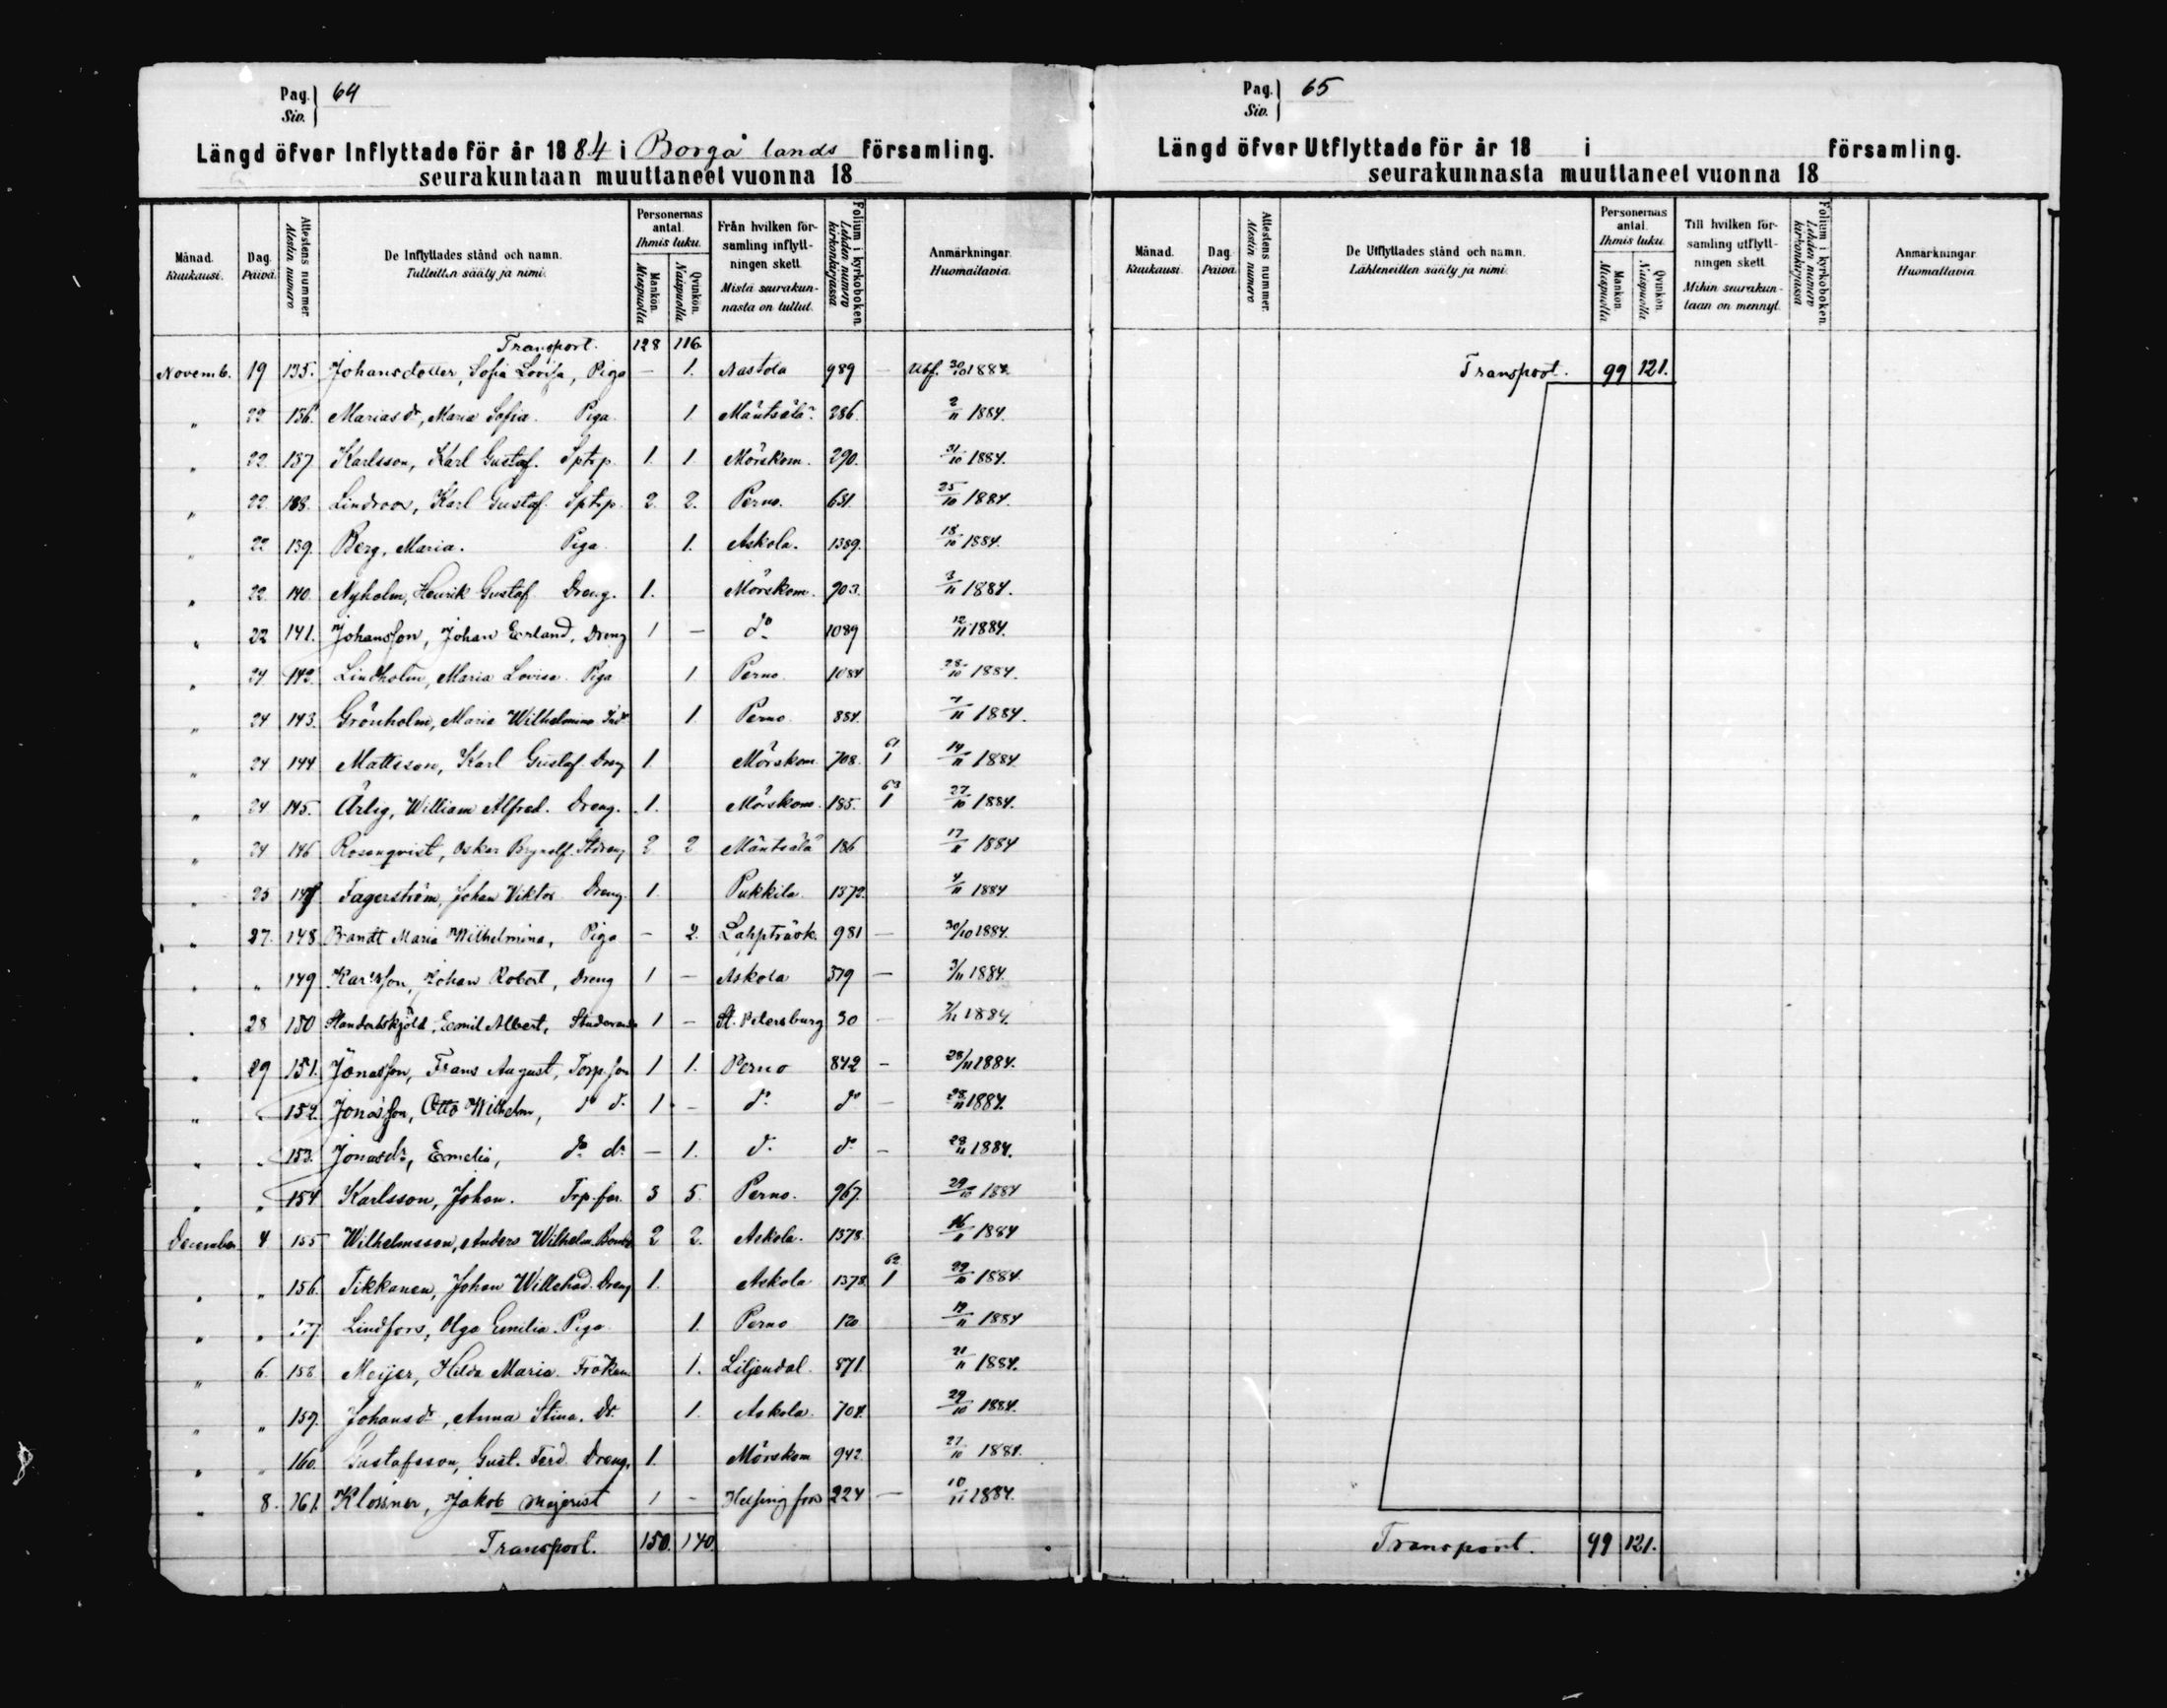 Pag. 64
Siv.
Längd öfver Inflyttade för år 1884 i Borgå lands församling.
seurakuntaan muuttaneet vuonna 18
Månad. Kuukausi. Dag. Päivä. Attestens nummer. Alestin numero De Inflyttades stånd och namn. Tulleitten sääty ja nimi. Personernas antal. Ihmis luku. Mankön. Miespuolia Qvinkön. Naispuolia Från hvilken församling inflyttningen skett. Mistä seurakunnasta on tullut. Folium i kyrkoboken. Lehden numero kirkonkirjassa Anmärkningar. Huomattavia.
Transport. 128 116
Novemb. 19 135. Johansdotter, Sofia Lovisa, Piga — 1. Nastola 989 — Utf. 30/10 1884.
" 22 136. Mariasdr, Maria Sofia. Piga. 1 Mäntsälä 286. 2/11 1884.
" 22 137 Karlsson, Karl Gustaf. Sptrp. 1. 1 Mörskom. 290. 31/10 1884.
" 22 138. Lindroos, Karl Gustaf. Sptrp. 2. 2. Perno. 651. 25/10 1884.
" 22 139. Berg, Maria. Piga 1. Askola. 1389. 18/10 1884.
" 22 140. Nyholm, Henrik Gustaf Dreng. 1. Mörskom. 903. 3/11 1884.
" 22 141. Johansson, Johan Erland, Dreng 1 — do 1089 12/11 1884.
" 24 142. Lindholm, Maria Lovisa. Piga 1 Perno. 1084 28/10 1884.
" 24 143. Grönholm, Maria Wilhelmina 1 Perno. 884. 7/11 1884.
" 24 144 Mattsson, Karl Gustaf Dreng 1. Mörskom. 708. 61/1 14/11 1884.
" 24 145. Ärlig, William Alfred. Dreng. 1. Mörskom. 185. 63/1 27/10 1884.
" 24 146 Rosenqvist, Oskar Brynolf. Stdreng 2 2 Mäntsälä 186 17/11 1884
" 25 147 Fagerström, Johan Viktor Dreng. 1. Pukkila. 1372. 4/11 1884
" 27. 148 Brandt Maria Wilhelmina, Piga — 2. Lappträsk. 981 — 30/10 1884.
" " 149 Karlsson, Johan Robert, Dreng 1 — Askola 379 — 3/11 1884.
" 28 150 Standertskjöld, Emil Albert, Studerande 1 — St. Petersburg 30 — 1884.
" 29 151. Jonasson, Frans August, Torp. son 1 1. Perno 842 — 28/11 1884.
" " 152. Jonasson, Otto Wilhelm, do do 1 — do do — 28/11 1884.
" " 153. Jonasdr, Emelia, do do — 1. do do — 28/11 1884.
" " 154 Karlsson, Johan. Trp. 3 5. Perno. 967. 29/10 1884
December 4. 155 Wilhelmsson, Anders Wilhelm. 2 2. Askola. 1378. 16/11 1884
" " 156. Tikkanen, Johan Willehad. Dreng 1. Askola 1378. 62/1 22/10 1884.
" " 157. Lindfors, Olga Emilia. Piga 1. Perno 120 19/11 1884
" 6. 158 Meijer, Hilda Maria. Fröken 1. Liljendal. 871. 21/11 1884.
" " 159. Johansdr, Anna Stina. Dr. 1. Askola. 704. 29/10 1884.
" " 160. Gustafsson, Gust. Ferd. Dreng. 1. Mörskom 942. 27/10 1884.
" 8. 161. Klossner, Jakob Mejerist 1 — Helsingfors 224 — 10/11 1884.
Transport. 150. 140.
Pag. 65
Siv.
Längd öfver Utflyttade för år 18 i församling.
seurakunnasta muuttaneet vuonna 18
Månad. Kuukausi. Dag. Päivä. Attestens nummer. Alestin numero De Utflyttades stånd och namn. Lähteneitten sääty ja nimi. Personernas antal. Ihmis luku. Mankön. Miespuolia Qvinkön. Naispuolia Till hvilken församling utflyttningen skett. Mihin seurakuntaan on mennyt. Folium i kyrkoboken. Lehden numero kirkonkirjassa Anmärkningar. Huomattavia.
Transport. 99 121.
Transport. 99 121.